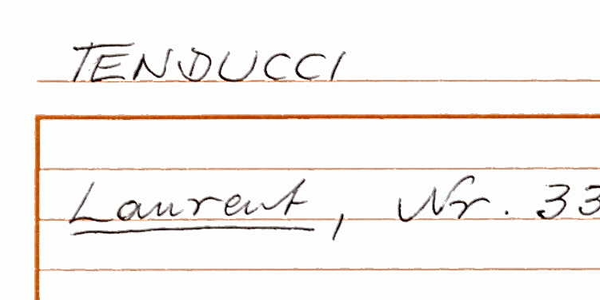 TENDUCCI
Laurent, Nr. 33